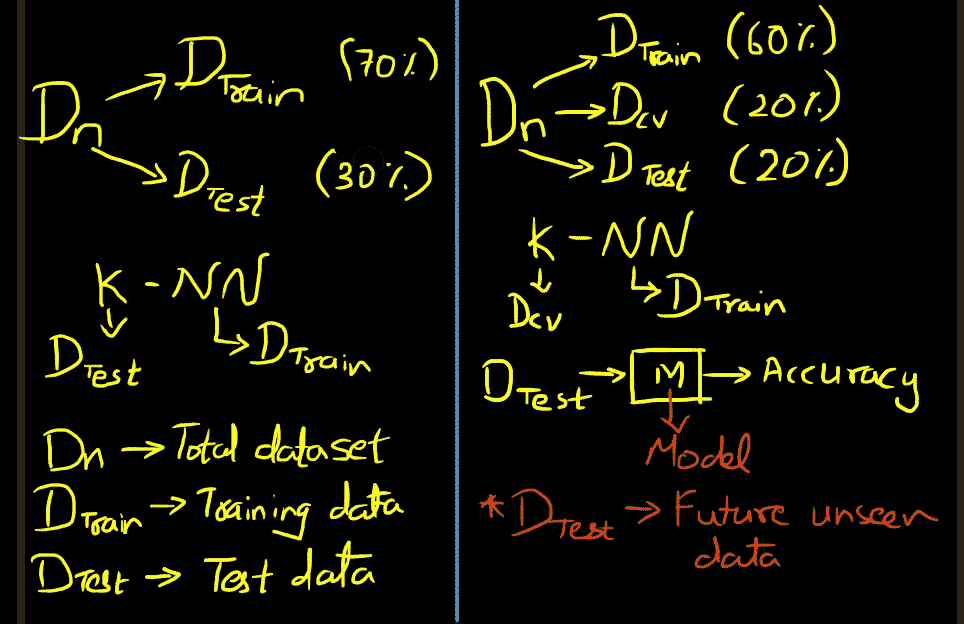 Dn → DTrain (70%)
→ DTest (30%)
K - NN
↓ DTest
↳ DTrain
Dn → Total dataset
DTrain → Training data
DTest → Test data
Dn → DTrain (60%)
→ Dcv (20%)
→ DTest (20%)
K - NN
↓ Dcv
↳ DTrain
DTest → M → Accuracy
↓
Model
* DTest → Future unseen
data